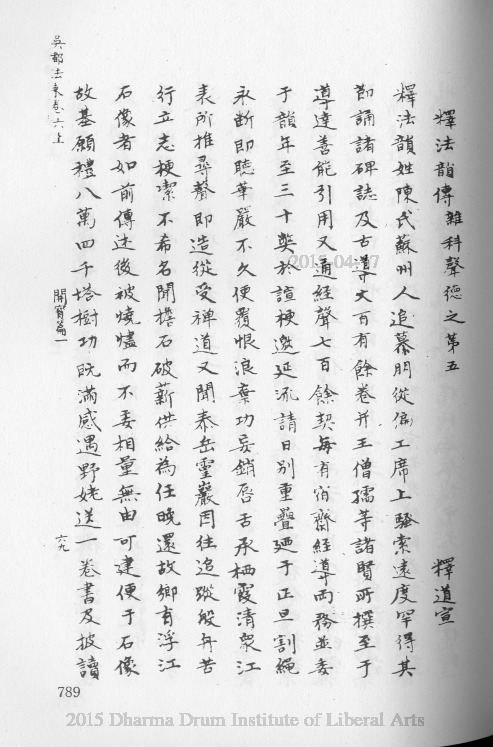 釋法韻傳 雜科聲德之第五 釋道宣
釋法韻姓陳氏蘇州人追慕朋從偏工席上騷索遠度罕得其
節誦諸碑誌及古導文百有餘卷并王僧孺等諸賢所撰至于
導達善能引用又通經聲七百餘契每有宿齋經導兩務並委
于韻年至三十弊於諠梗邀延流請日別重疊廼于正旦割繩
永斷即聽華嚴不久便覆恨浪棄功妄銷唇舌承栖霞清衆江
表所推尋聲即造從受禪道又聞泰岳靈巖因往追蹤般舟苦
行立志梗潔不希名聞擔石破薪供給為任晚還故鄉有浮江
石像者如前傳述後被燒燼而不委相量無由可建便于石像
故基願禮八萬四千塔樹功既滿感遇野姥送一卷書及披讀
吳都法乘卷六上
開宵篇一
六九
789
2015-04-07
2015 Dharma Drum Institute of Liberal Arts